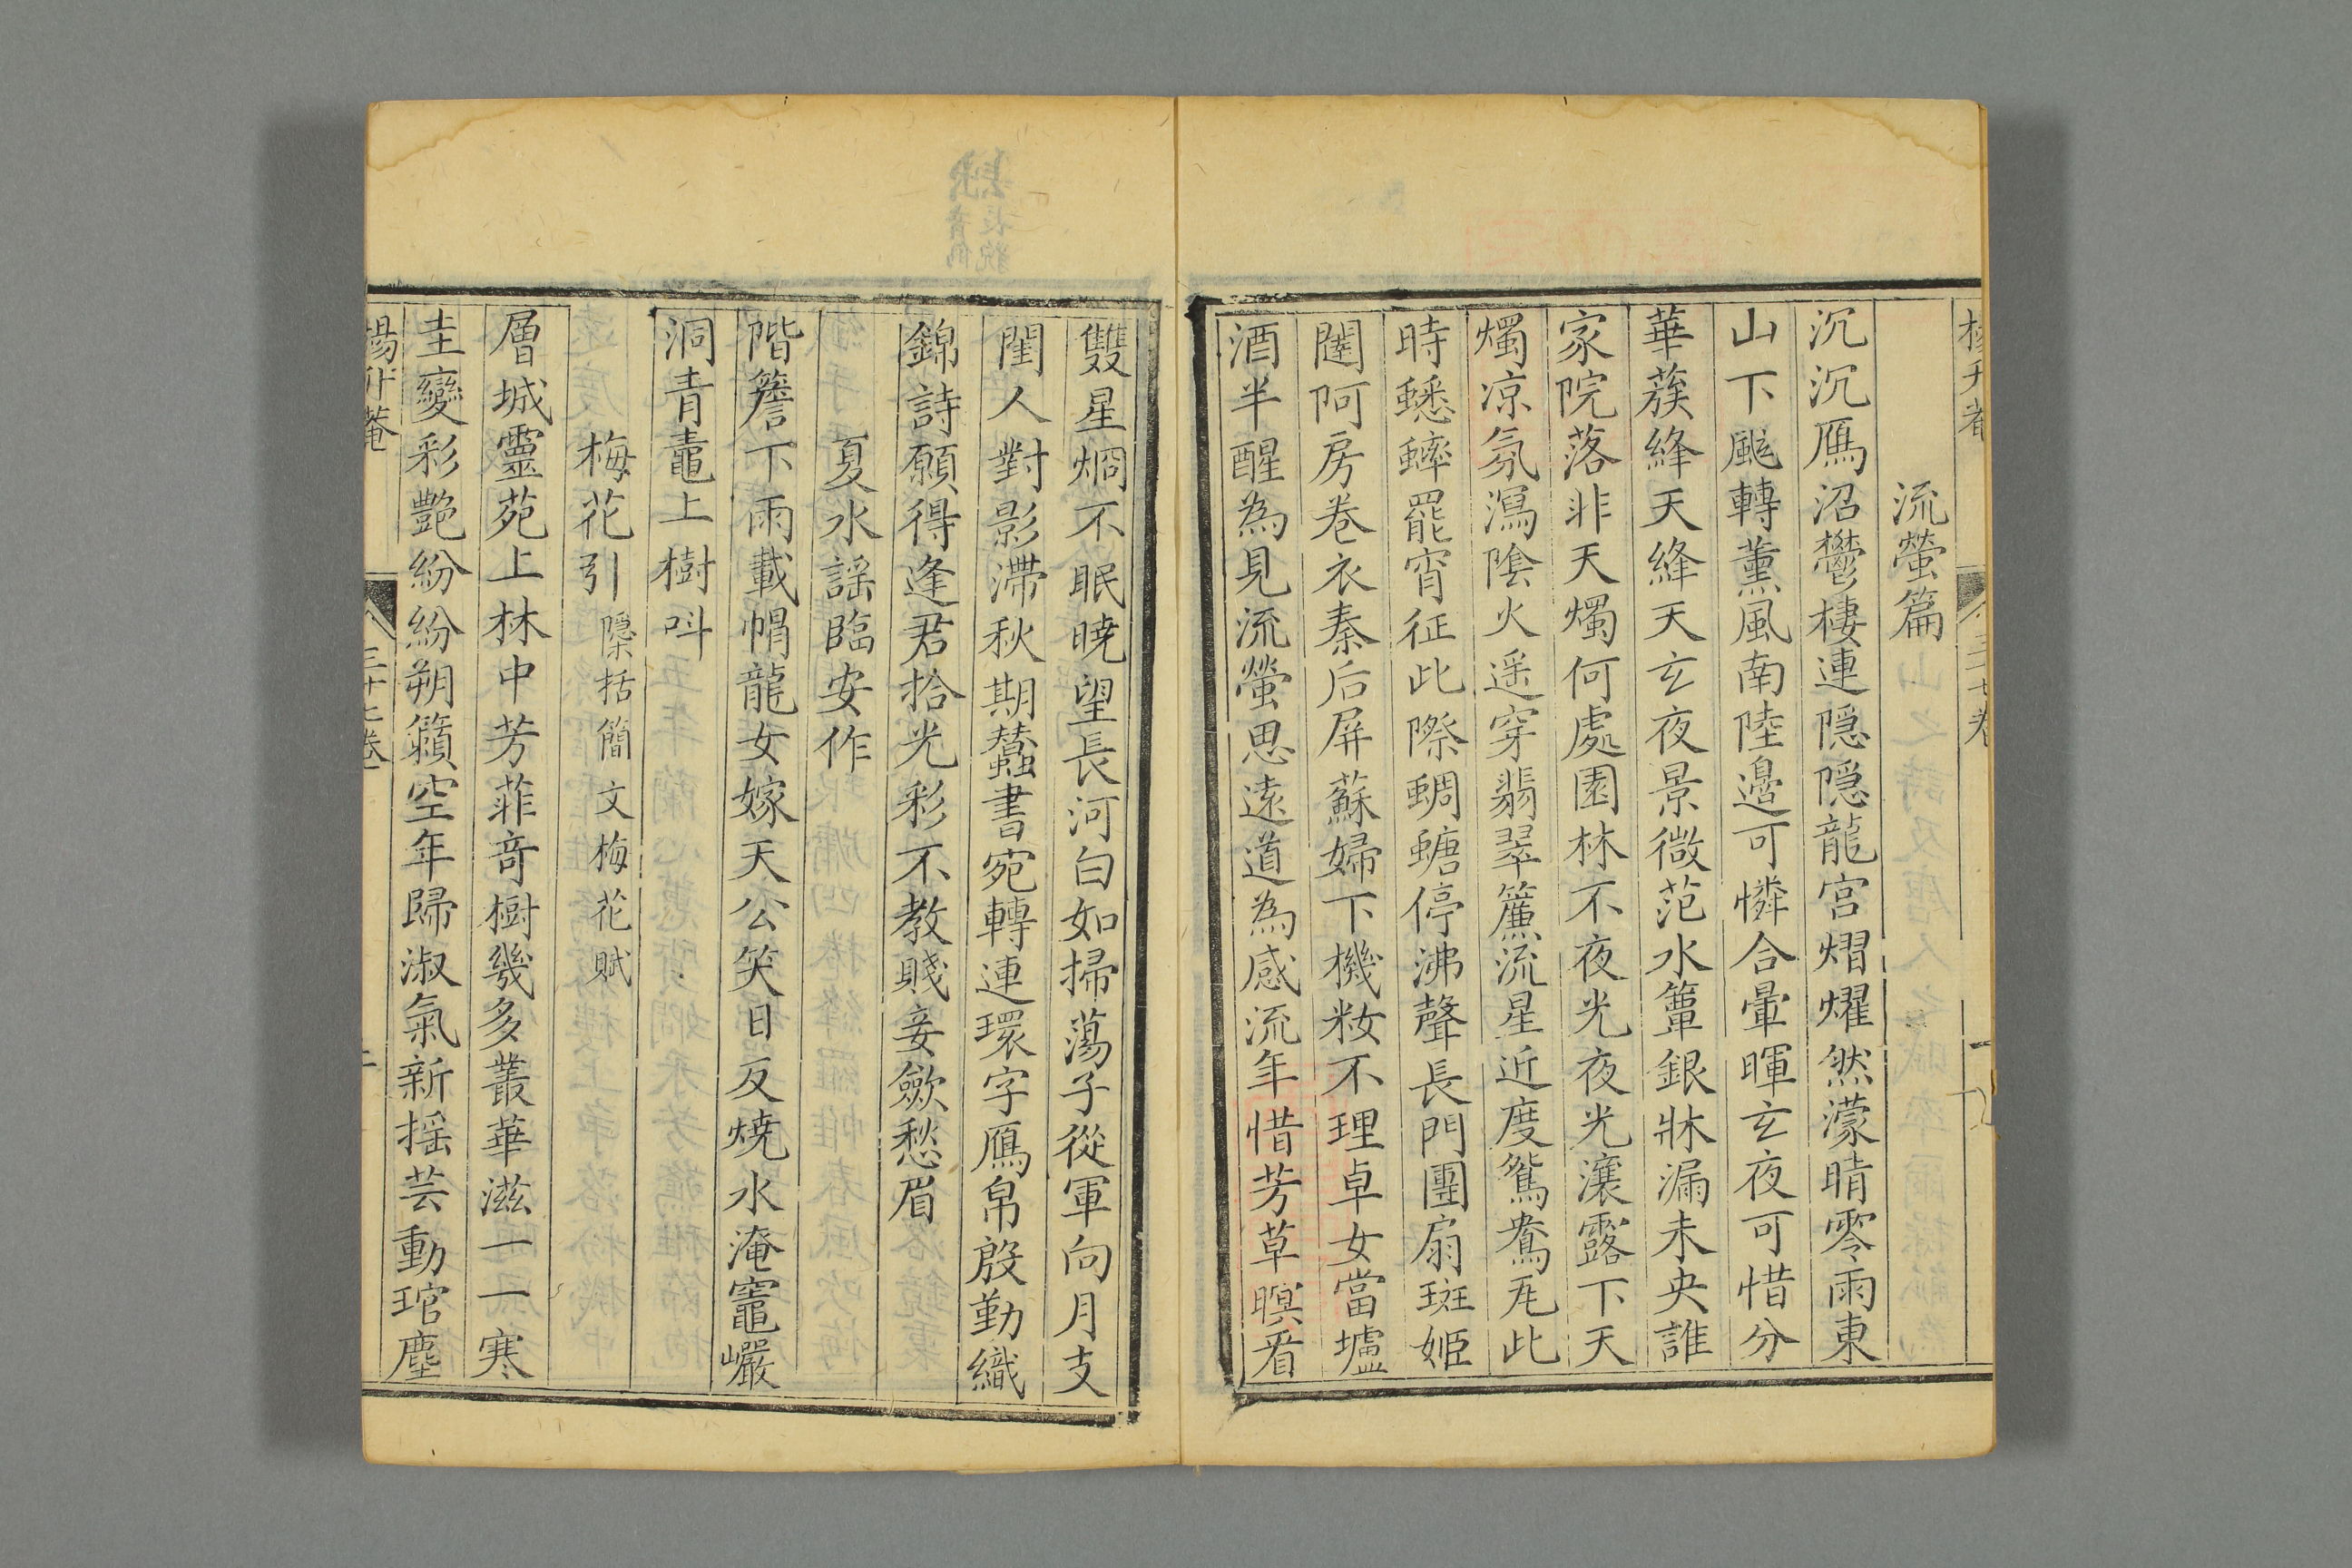 流螢篇
沉沉鴈沼鬱棲連隱隱龍宮熠燿然濛晴零雨東
山下颭轉薰風南陸邉可憐合暈暉玄夜可惜分
華蔟絳天絳天玄夜景微范水簟銀牀漏未央誰
家院落非天燭何處園林不夜光夜光瀼露下天
燭凉氛瀉陰火遥穿翡翠簾流星近度鴛鴦瓦此
時蟋蟀罷宵征此際蜩螗停沸聲長門團扇斑姬
闥阿房卷衣秦后屏蘇婦下機粧不理卓女當壚
酒半醒為見流螢思遠道為感流年惜芳草暝看
雙星烱不眠曉望長河白如掃蕩子從軍向月支
閨人對影滯秋期蠶書宛轉連環字鴈帛殷勤織
錦詩願得逢君拾光彩不教賤妾歛愁眉
夏水謡臨安作
階簷下雨載帽龍女嫁天公笑日反燒水淹竈巖
洞青鼃上樹呌
梅花引隱括簡文梅花賦
層城靈苑上林中芳菲竒樹幾多叢華滋一一寒
圭變彩艷紛紛朔籟空年歸淑氣新揺芸動琯塵
楊升菴
三十七卷